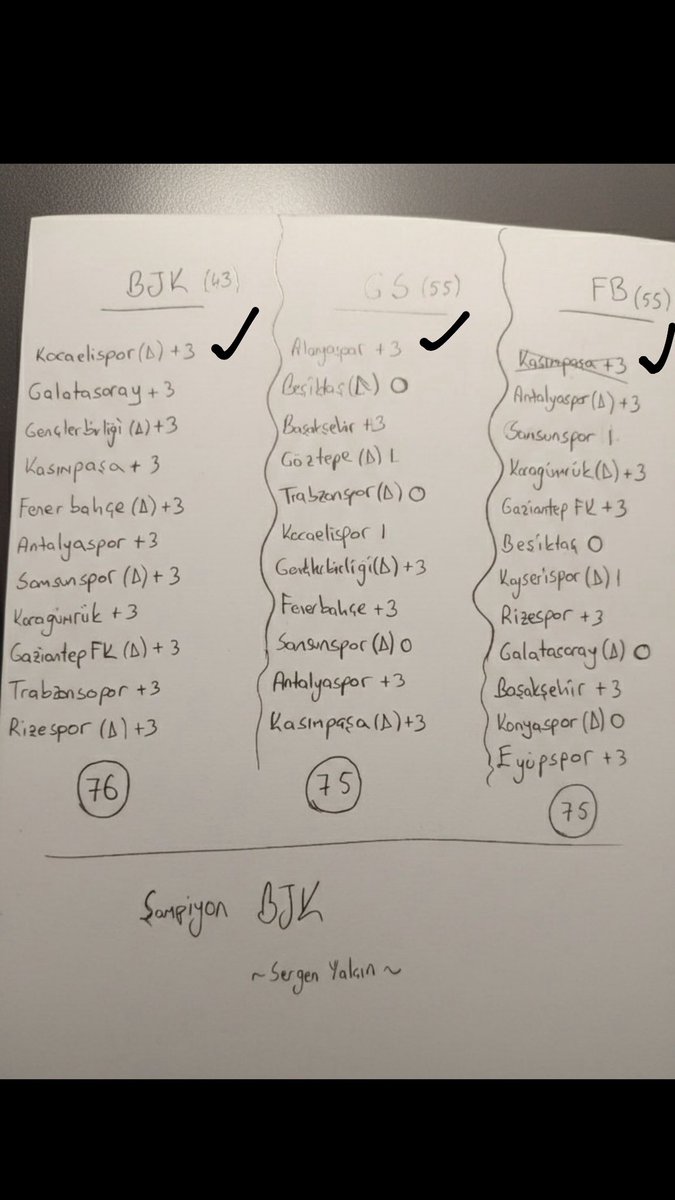 BJK (43)
Kocaelispor (Δ) +3
Galatasaray +3
Gençlerbirliği (Δ) +3
Kasınpaşa +3
Fenerbahçe (Δ) +3
Antalyaspor +3
Samsunspor (Δ) +3
Karagümrük +3
Gaziantep FK (Δ) +3
Trabzonsopor +3
Rizespor (Δ) +3
76
GS (55)
Alanyaspor +3
Beşiktaş (Δ) 0
Başakşehir +3
Göztepe (Δ) 1
Trabzonspor (Δ) 0
Kocaelispor 1
Gençlerbirligi (Δ) +3
Fenerbahçe +3
Samsunspor (Δ) 0
Antalyaspor +3
Kasımpaşa (Δ) +3
75
FB (55)
Kasımpaşa +3
Antalyaspor (Δ) +3
Samsunspor 1
Karagümrük (Δ) +3
Gaziantep FK +3
Beşiktaş 0
Kayserispor (Δ) 1
Rizespor +3
Galatasaray (Δ) 0
Başakşehir +3
Konyaspor (Δ) 0
Eyüpspor +3
75
Şampiyon BJK
~Sergen Yalçın~